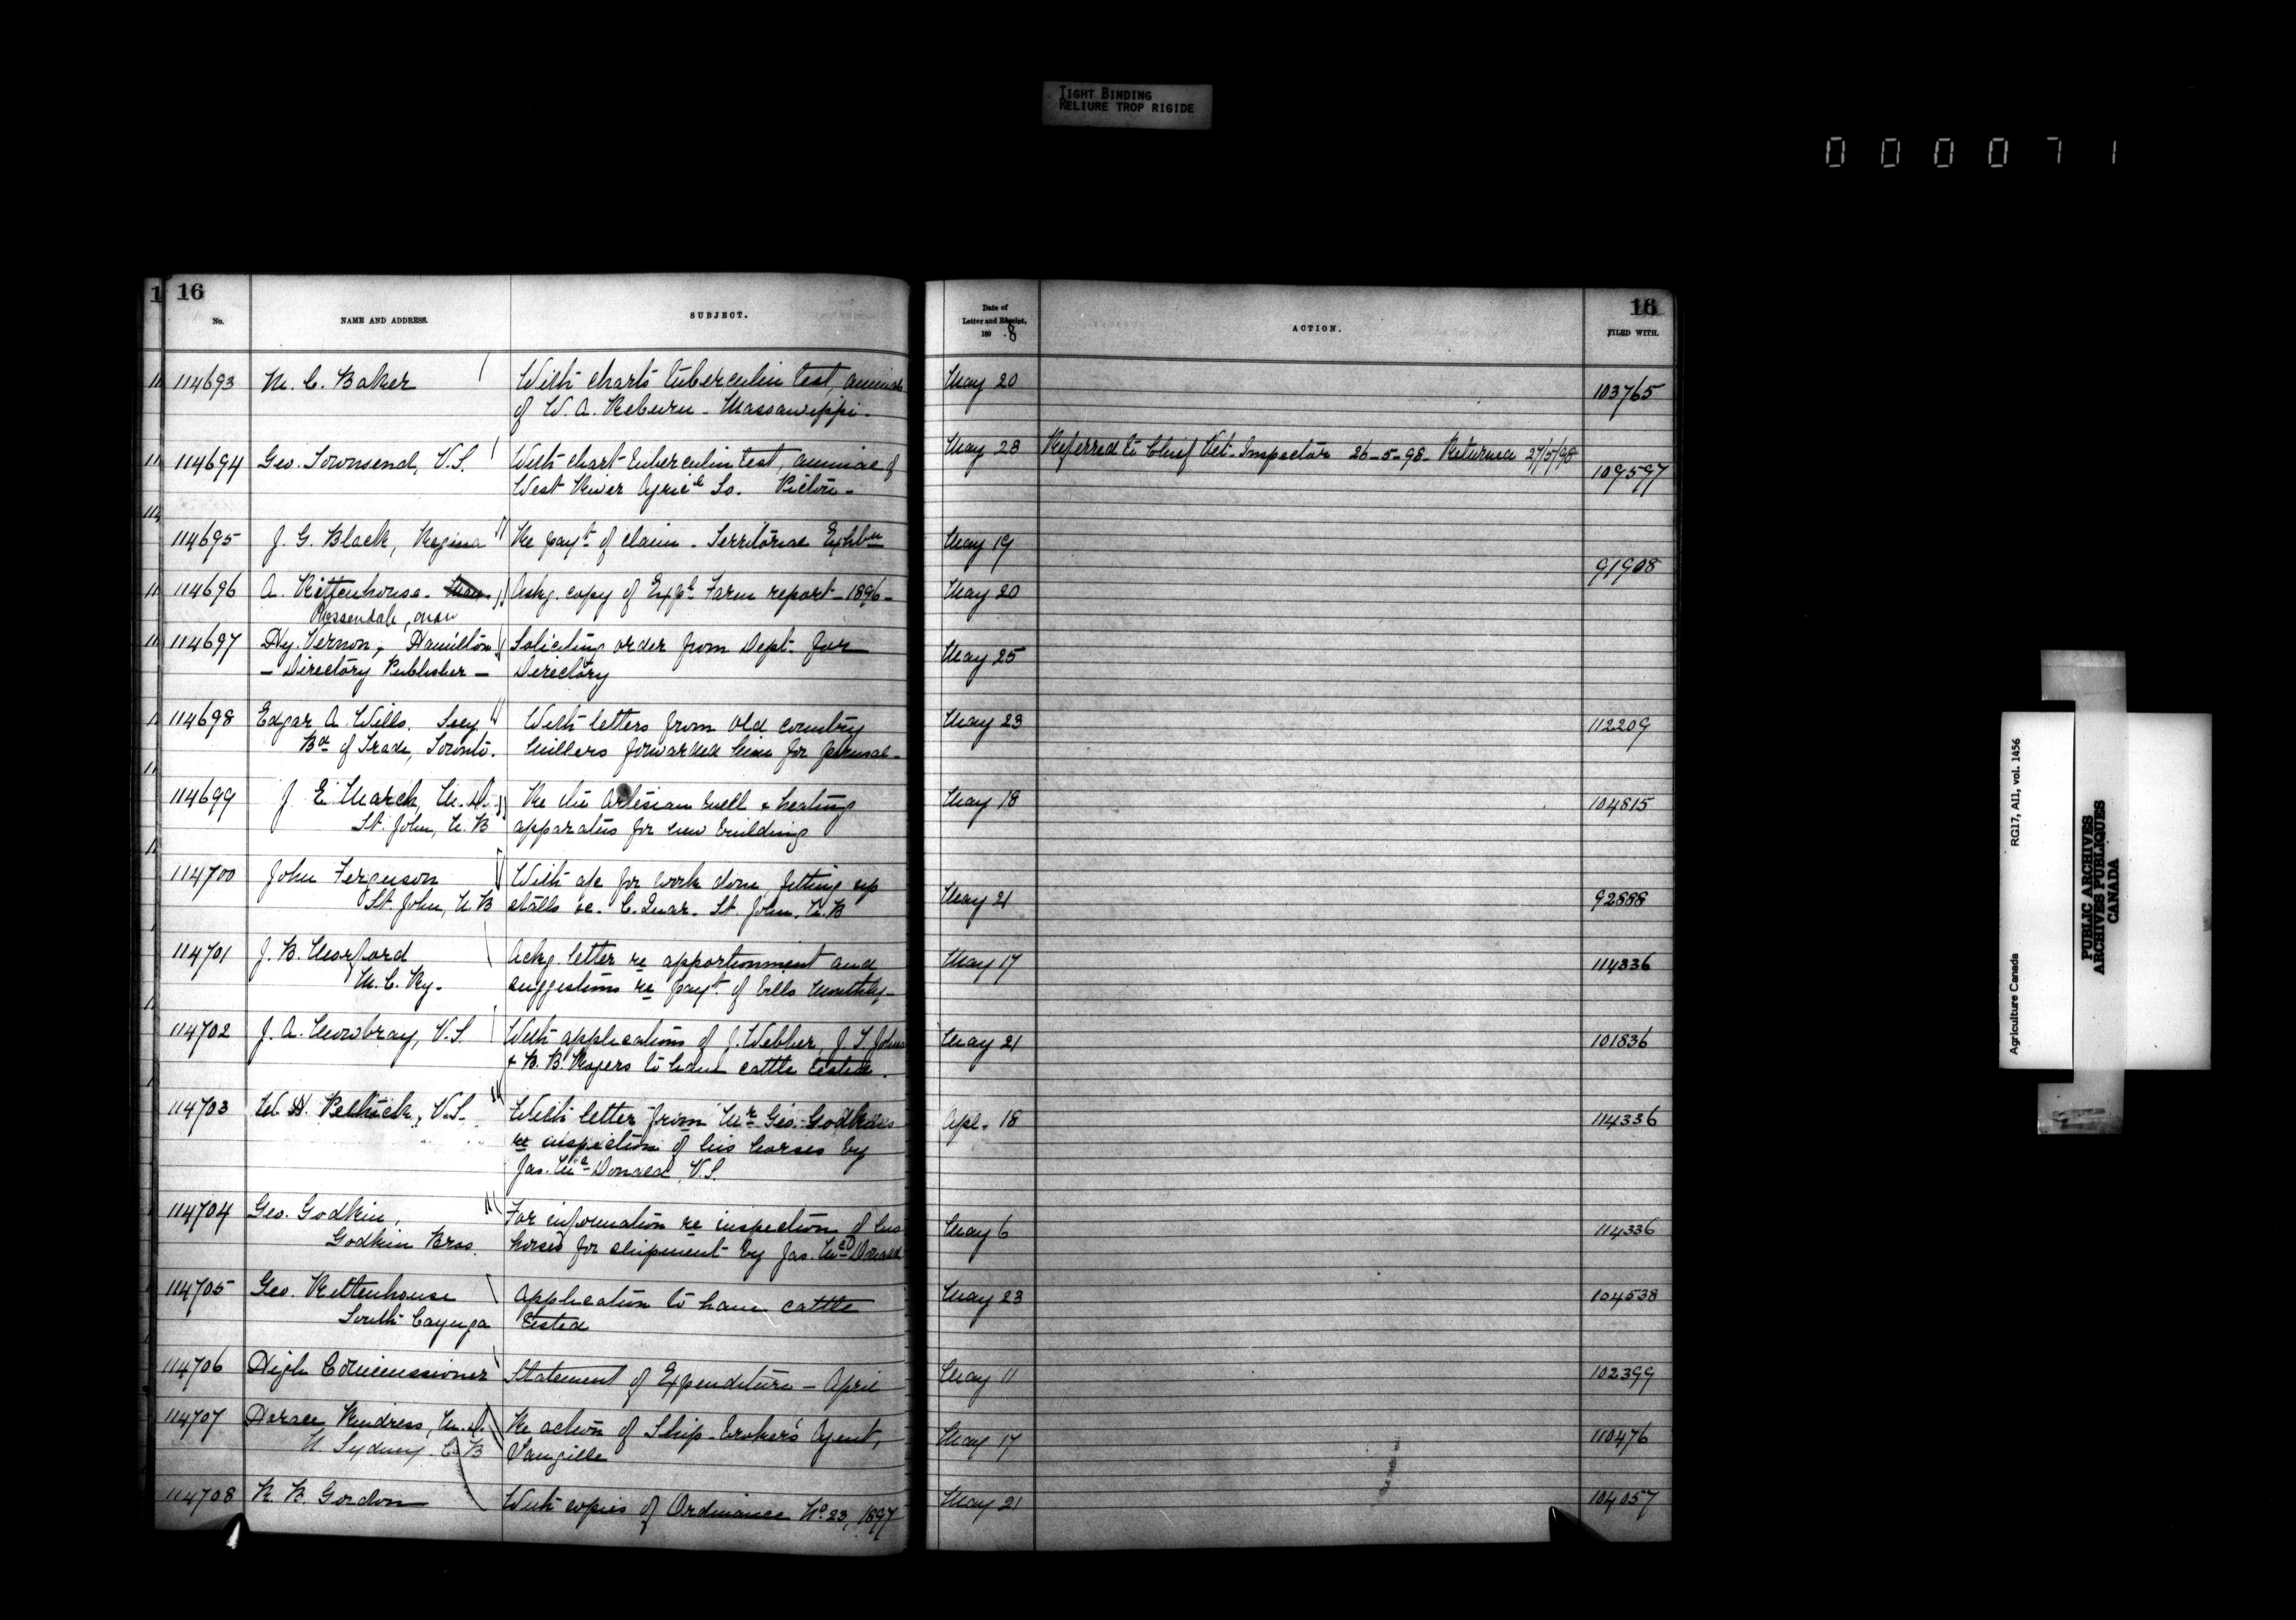 TIGHT BINDING
RELIURE TROP RIGIDE
000071
16
No.
NAME AND ADDRESS.
SUBJECT.
Date of
Letter and Receipt,
189 8
ACTION.
16
FILED WITH.
114693 M. C. Baker With charts tuberculin test, animals May 20 103765
of W. A. Reburn - Massawippi -
114694 Geo. Townsend, V.S. With chart tuberculin test, animal of May 23 Referred to Chief Vet. Inspector 26-5-98 - Returned 27/5/98 109597
West River Agricl So. Pictou -
114695 J. G. Black, Regina Re payt of claim - Territorial Exhbn May 19 91908
114696 A. Rittenhouse - Askg. copy of Expl Farm report - 1896 - May 20
Rossendale, Man
114697 Hy. Vernon, Hamilton Soliciting order from Dept. for May 25
- Directory Publisher - Directory
114698 Edgar A. Wills. Secy With letters from old country May 23 112209
Bd of Trade, Toronto. Millers forwarded him for perusal -
114699 J. E. March, M.D. Re the Artesian well & heating May 18 104815
St. John, N.B apparatus for new building
114700 John Ferguson With a/c for work done, fitting up May 21 92888
St. John, N.B stalls &c. C. Quar. St. John, N.B
114701 J. B. Morford Ackg. letter re apportionment and May 17 114336
M. C. Ry. suggestions re payt of bills monthly -
114702 J. A. Mowbray, V.S. With applications of J. Webber J. S. May 21 101836
& B. B. Rogers to have cattle tested.
114703 W. H. Pethick, V.S. With letter from Mr Geo. Godkin Apl. 18 114336
re inspection of his horses by
Jas. McDonald, V.S.
114704 Geo. Godkin, For information re inspection of his May 6 114336
Godkin Bros. horses for shipment by Jas. McDonald
114705 Geo. Rittenhouse Application to have cattle May 23 104538
South Cayuga tested
114706 High Commissioner Statement of Expenditure - April May 11 102399
114707 Horace Rindress, M.D. Re action of Ship-broker's Agent, May 17 110476
N. Sydney. C.B
114708 R. R. Gordon With copies of Ordinance No. 23, 1897 May 21 104057
Agriculture Canada RG17, AII, vol. 1456
PUBLIC ARCHIVES
ARCHIVES PUBLIQUES
CANADA